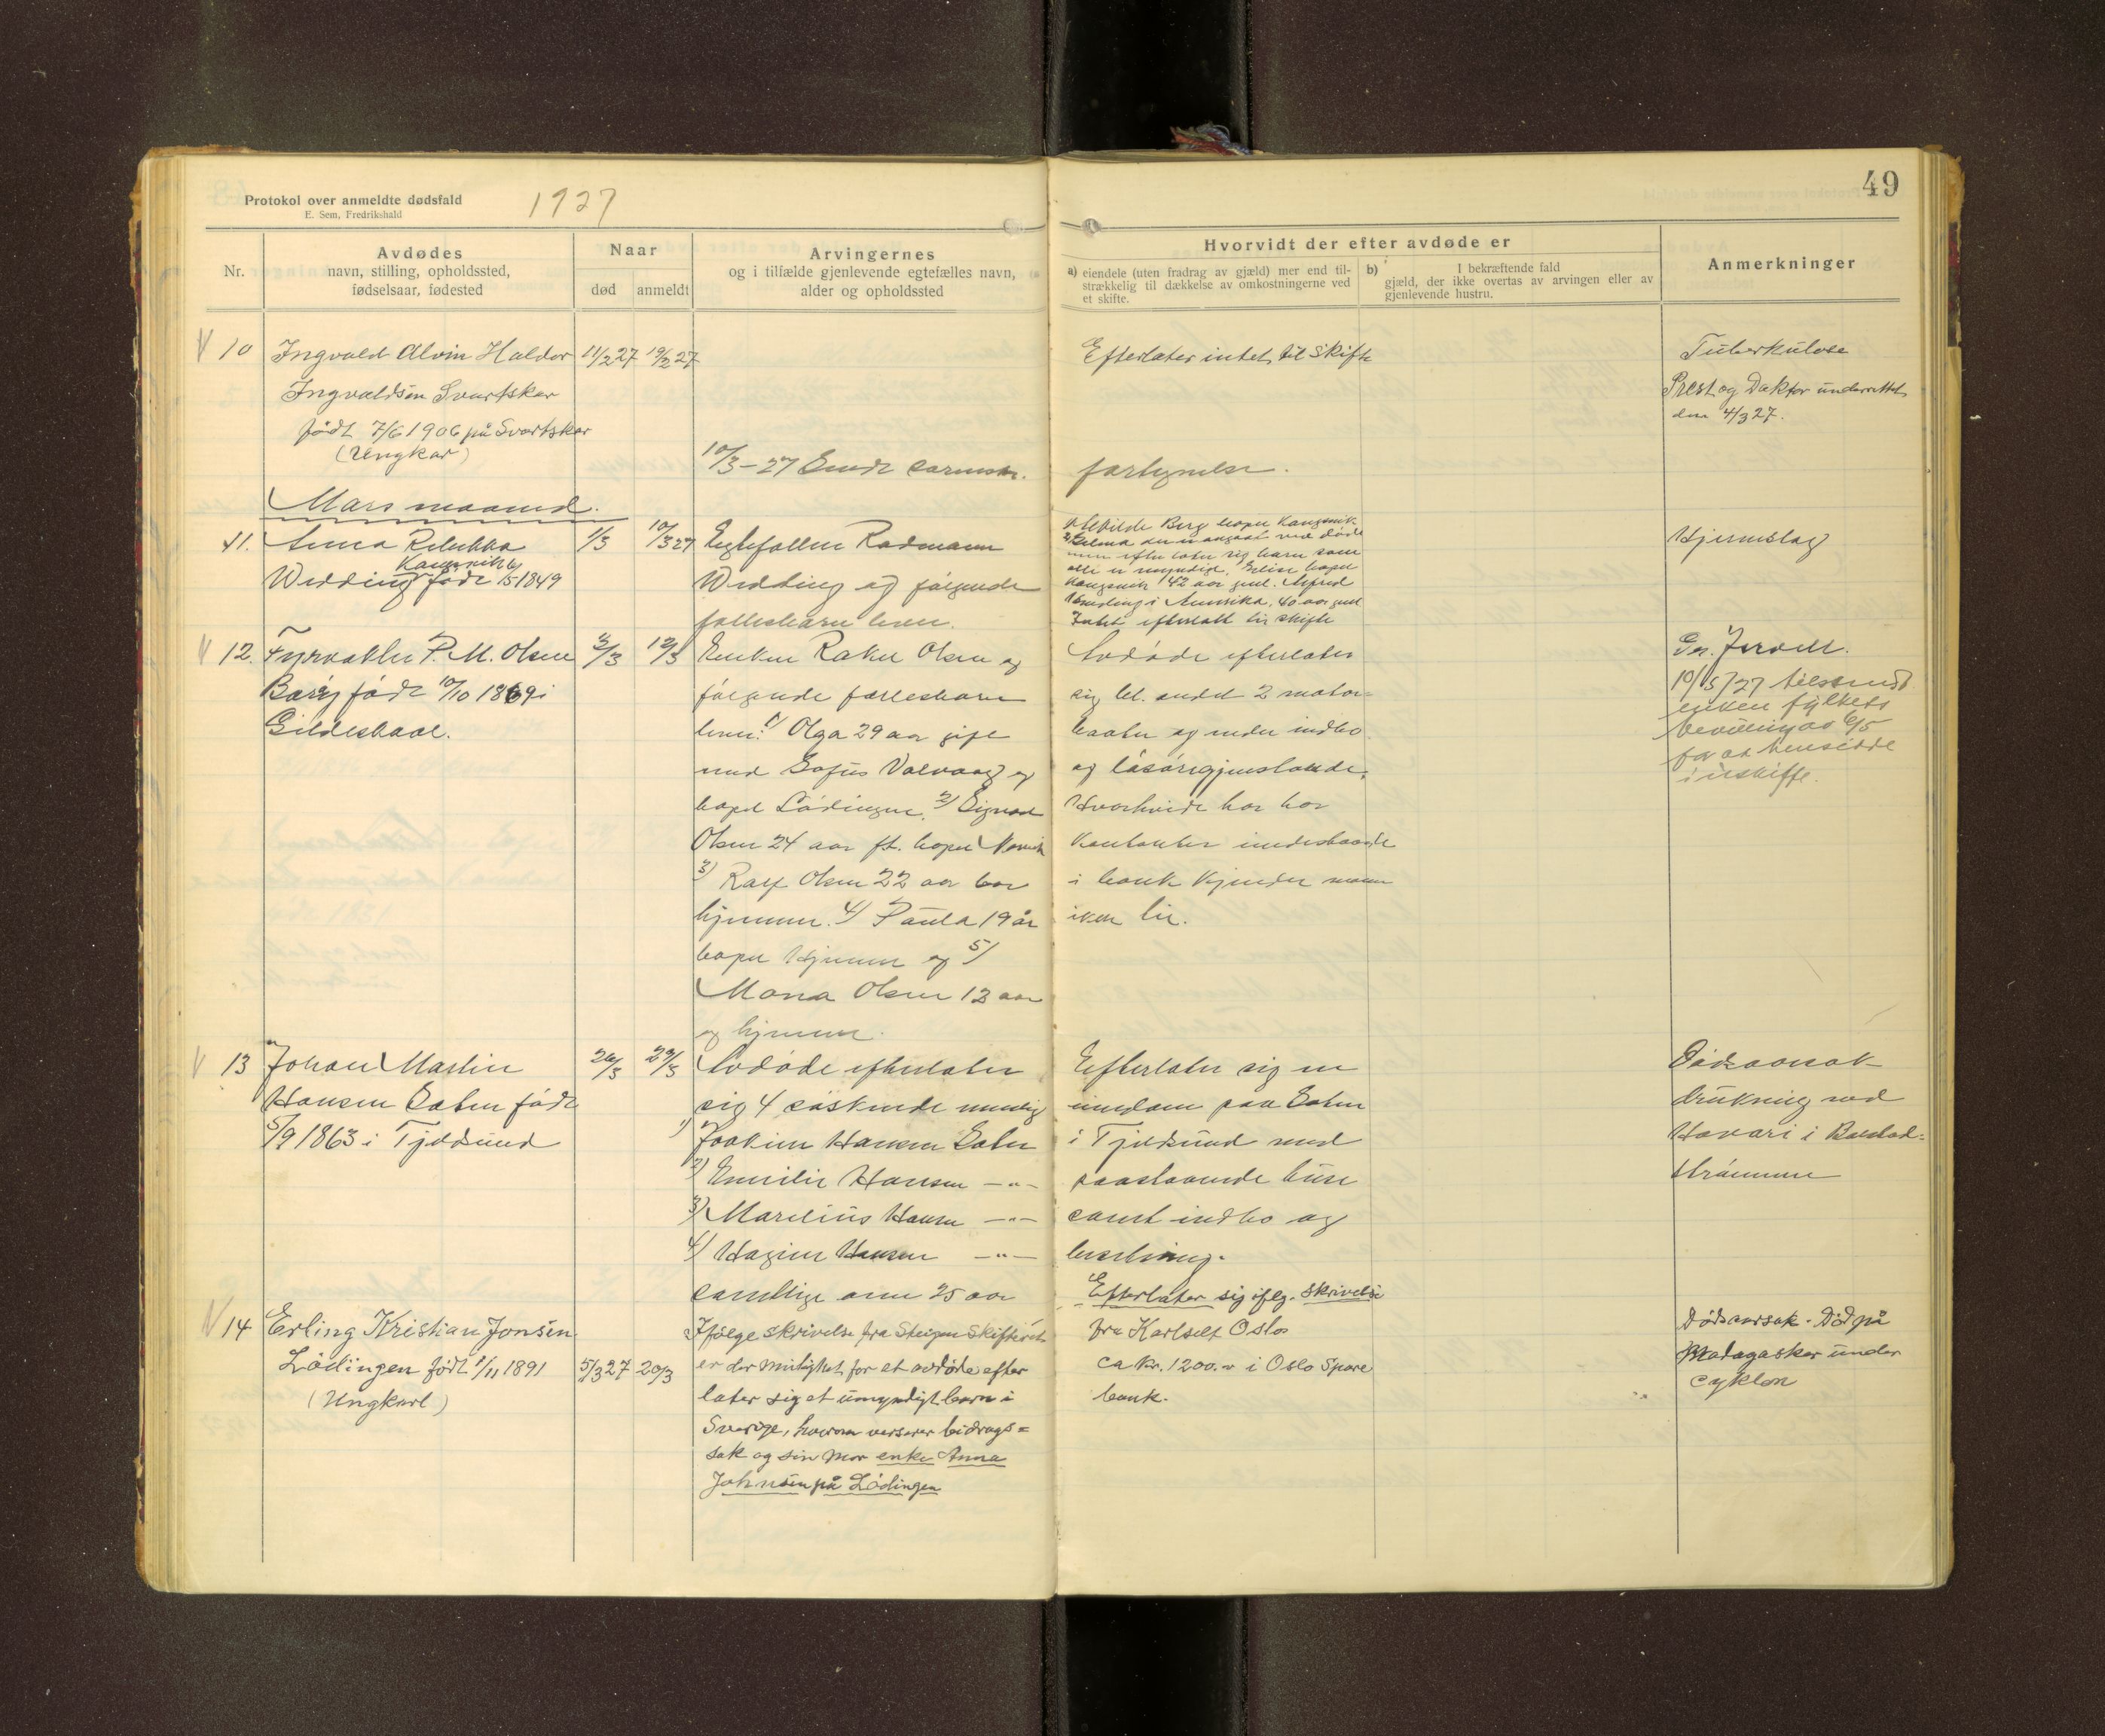 Protokol over anmeldte dødsfald
E. Sem, Fredrikshald
1927
49
Nr.
Avdødes
navn, stilling, opholdssted,
fødselsaar, fødested
Naar
død
anmeldt
Arvingernes
og i tilfælde gjenlevende egtefælles navn,
alder og opholdssted
Hvorvidt der efter avdøde er
a) eiendele (uten fradrag av gjæld) mer end til-
strækkelig til dækkelse av omkostningerne ved
et skifte.
b) I bekræftende fald
gjæld, der ikke overtas av arvingen eller av
gjenlevende hustru.
Anmerkninger
10
Ingvald Alvin Haldor
Ingvaldsen Svartskar
født 7/6 1906 på Svartskar
(Ungkar)
11/2 27
19/2 27
10/3-27 Sendt
Efterlater intet til Skifte
Tuberkulose
Prest og Doktor underrettet
den 4/3 27.
Mars maaned.
11.
Anna Rebekka
Kangsvik
Wedding født 1849
1/3
10/3 27
Egtefællen Radmann
Wedding og følgende
fællesbarn lever.
Berg bopæl Kangsvik
som efterlater sig barn som
alle er myndige. Elise bopæl
Kangsvik 42 aar gml. Alfred
Wedding i Amerika, 40 aar gml
Intet efterlatt til skifte
Hjerneslag
12.
Fyrvokter P. M. Olsen
Barøy født 10/10 1869 i
Gildeskaal.
2/3
12/3
Enken Rakel Olsen og
følgende fællesbarn
lever: 1/ Olga 29 aar gift
med Sofus Valvaag og
bopæl Lødingen. 2/ Sigvard
Olsen 24 aar ft. bopæl Narvik
3) Ralf Olsen 22 aar bor
hjemme. 4/ Paula 19 år
bopæl hjemme og 5/
Mona Olsen 12 aar
og hjemme.
Avdøde efterlater
sig bl. andet 2 motor-
baater og meder indbo
og løsøregjenstande.
Hvorhvidt har har
Kontanter indestaaende
i bank kjender mann
iken til.
10/5/27 tilsendt
enken fylkets
bevilling av 6/5
for at hensidde
i uskifte.
13
Johan Martin
Hansen Saten født
5/9 1863 i Tjeldsund
26/3
29/3
Avdøde efterlater
sig 4 søskende nemlig
1) Joakim Hansen Saten
2) Emilie Hansen —"—
3) Marelius Hansen —"—
4/ Hagin Hansen —"—
samtlige over 25 aar
Efterlater sig en
eiendom paa Saten
i Tjeldsund med
paastaaende huse
samt indbo og
besetning.
Dødsaarsak
drukning ved
Havari i Balstad-
strømmen
14
Erling Kristian Jonsen
Lødingen født 1/11 1891
(Ungkarl)
5/3 27
20/3
Ifølge skrivelse fra Steigen Skifteret
er der mulighet for at avdøde efter
later sig et umyndigt barn i
Sverige, hvorom verserer bidrags=
sak og sin mor enke Anna
Johnsen på Lødingen
Efterlater sig iflg. skrivelse
fra Oslo
ca kr. 1200.- i Oslo Spare
bank.
Dødsaarsak. Død på
Madagaskar under
cyklon